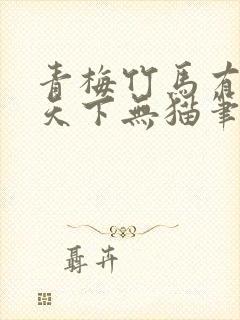 青梅竹馬有
天下無貓筆
聶卉